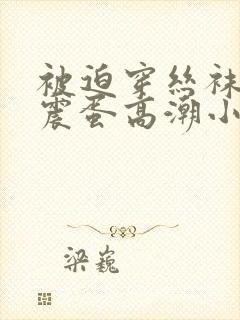 被迫穿丝袜
震蛋高潮小
梁巍